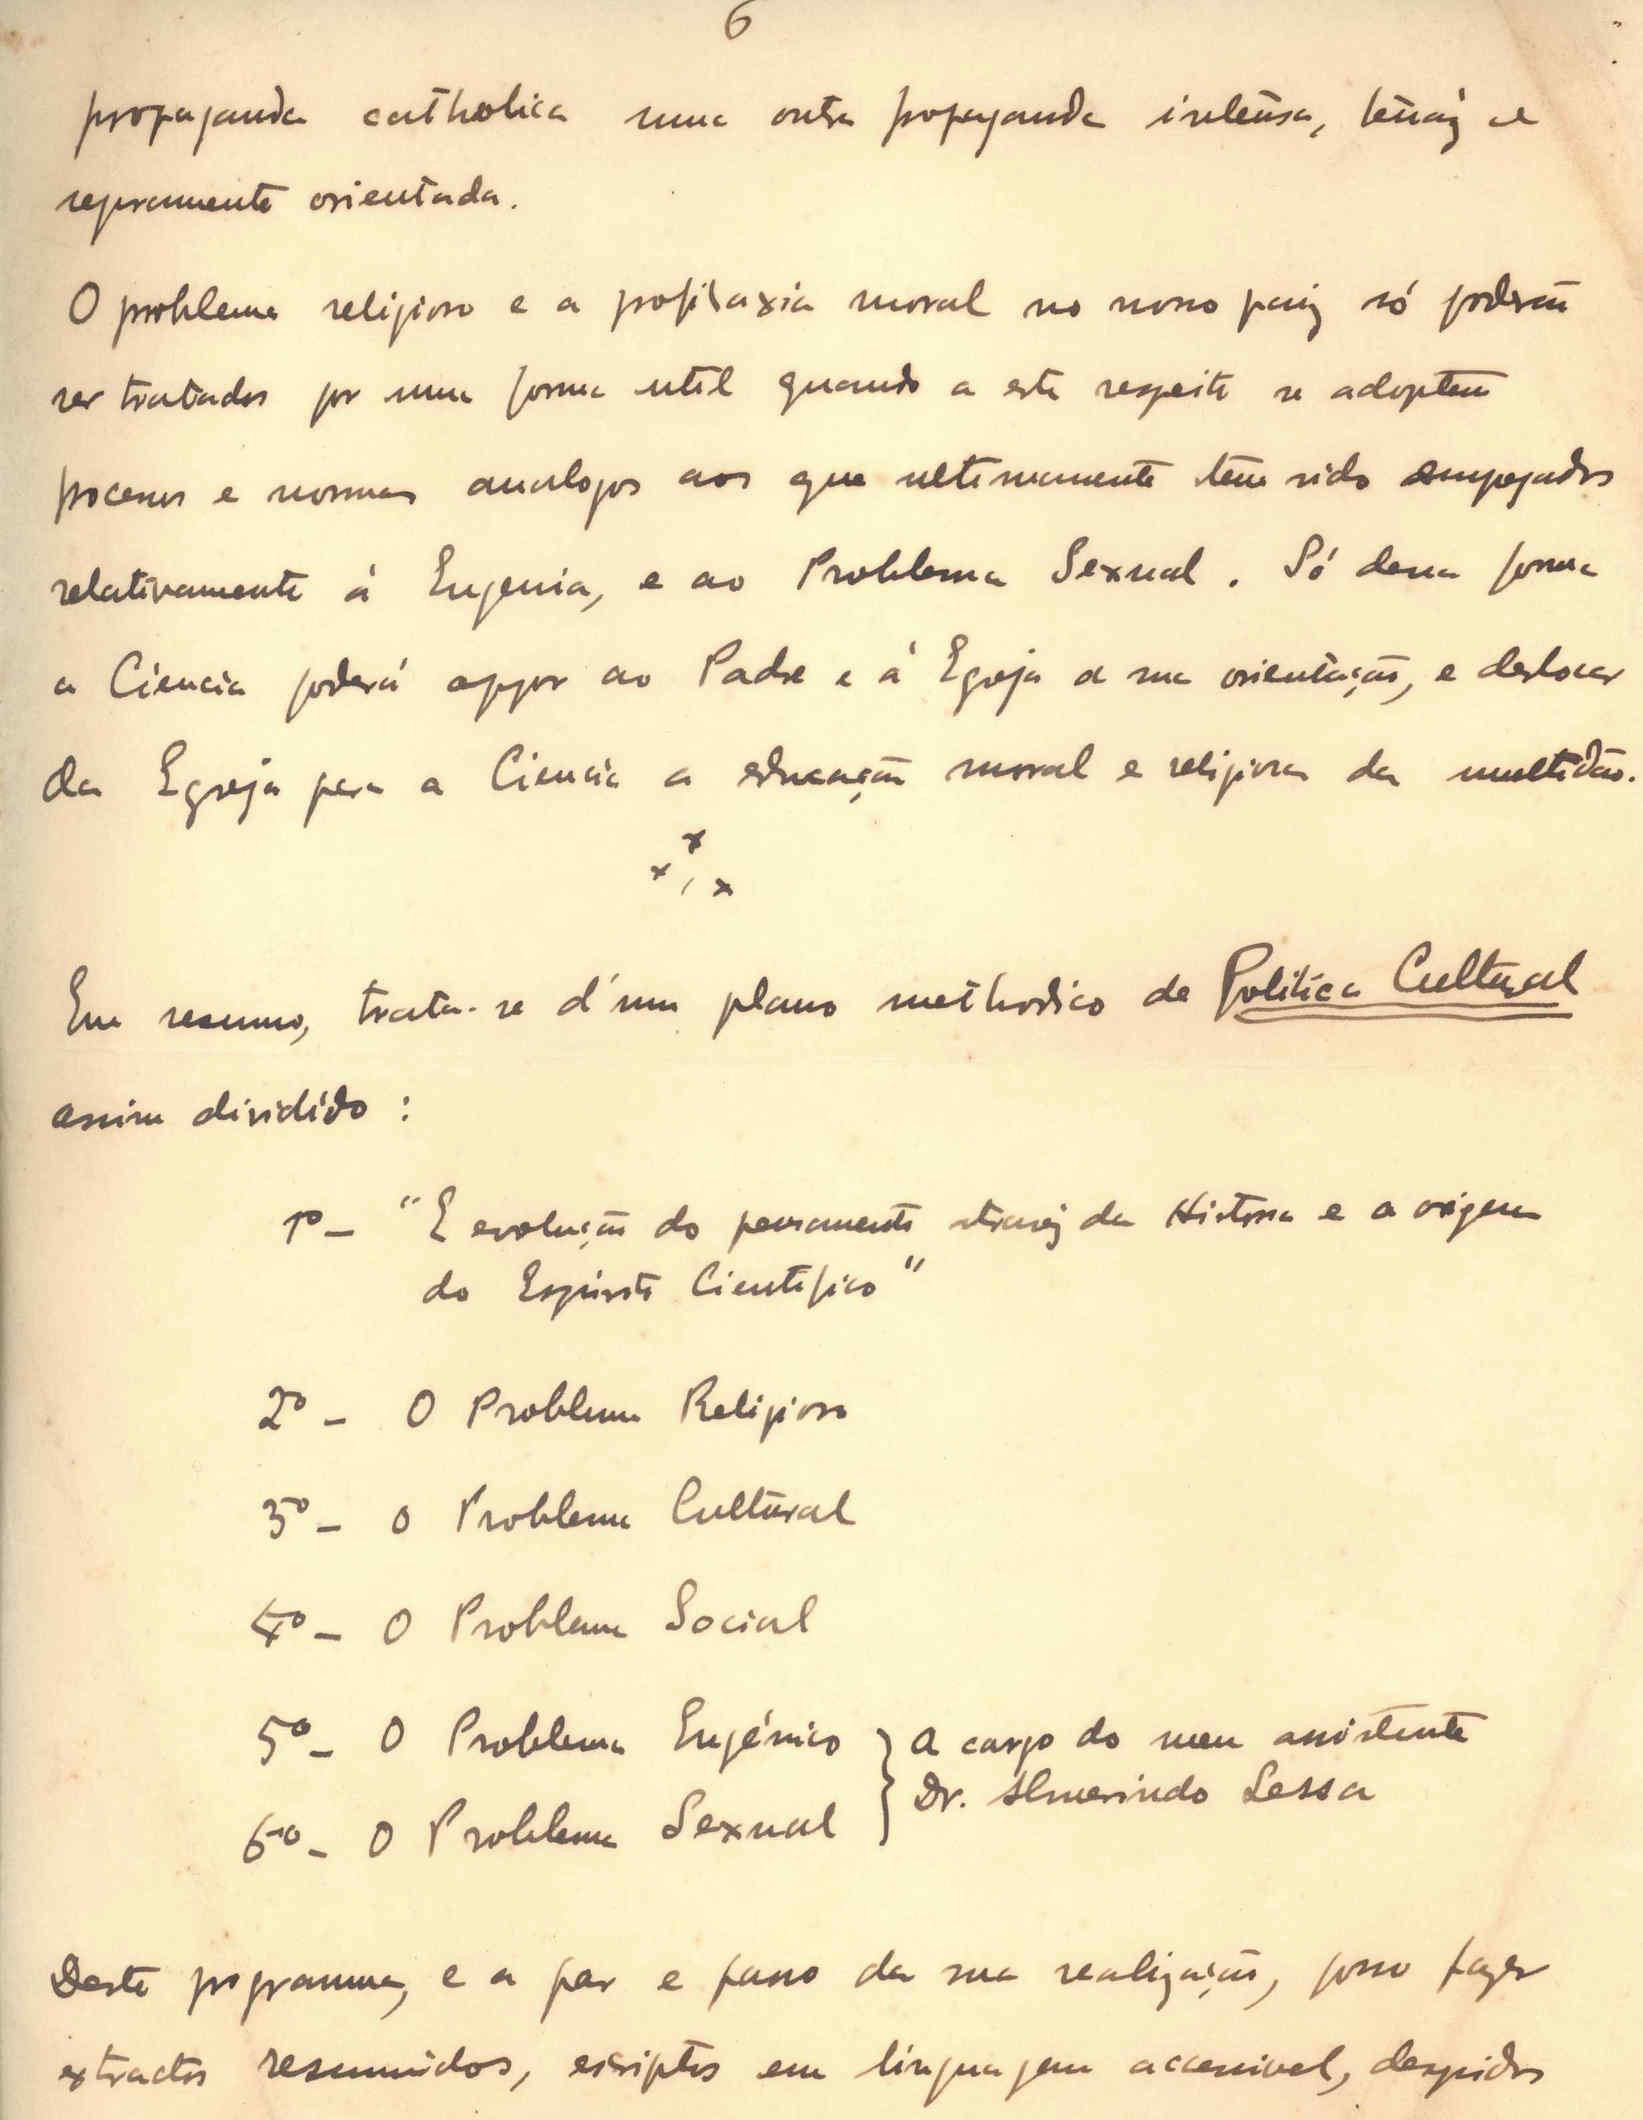 6
propaganda catholica uma outra propaganda intensa, tenáz e
seguramente orientada.
O problema religioso e a profilaxia moral no nosso paiz só poderão
ser tratados por uma forma util quando a este respeito se adoptem
processos e normas analogos aos que ultimamente têm sido empregados
relativamente á Eugenia, e ao Problema Sexual. Só dessa forma
a Ciencia poderá oppor ao Padre e á Egreja a sua orientação, e deslocar
da Egreja para a Ciencia a educação moral e religiosa da multidão.
x x x
Em resumo, trata-se d'um plano methodico de Politica Cultural
assim dividido :
1º - "E evolução do pensamento atravéz da Historia e a origem
do Espirito Cientifico"
2º - O Problema Religioso
3º - O Problema Cultural
4º - O Problema Social
5º - O Problema Eugénico } a cargo do meu assistente
6º - O Problema Sexual } Dr. Almerindo Lessa
Deste programma, e a par e passo da sua realização, posso fazer
extractos resumidos, escriptos em linguagem accessivel, despidos